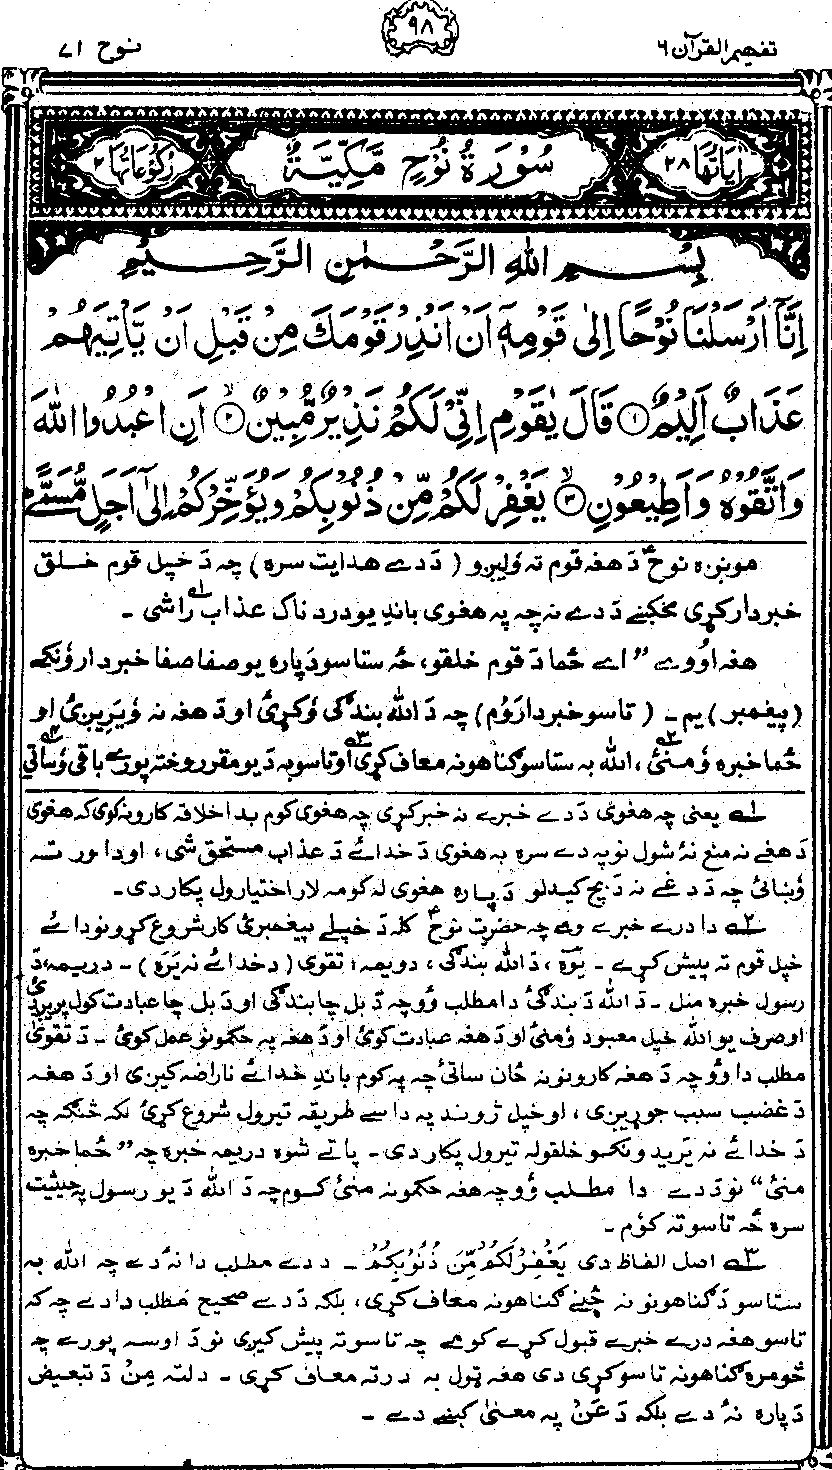 تفهیم القرآن ۶
۹۸
نوح ۷۱
اٰیَاتُهَا ۲۸
سُوْرَةُ نُوْحٍ مَّكِّيَّةٌ
رُكُوْعَاتُهَا ۲
بِسْمِ اللهِ الرَّحْمٰنِ الرَّحِيْمِ
اِنَّآ اَرْسَلْنَا نُوْحًا اِلٰى قَوْمِهٖٓ اَنْ اَنْذِرْ قَوْمَكَ مِنْ قَبْلِ اَنْ يَّاْتِيَهُمْ
عَذَابٌ اَلِيْمٌ ۝۱ قَالَ يٰقَوْمِ اِنِّيْ لَكُمْ نَذِيْرٌ مُّبِيْنٌ ۝۲ اَنِ اعْبُدُوا اللهَ
وَاتَّقُوْهُ وَاَطِيْعُوْنِ ۝۳ يَغْفِرْ لَكُمْ مِّنْ ذُنُوْبِكُمْ وَيُؤَخِّرْكُمْ اِلٰٓى اَجَلٍ مُّسَمًّى
مونږه نوحؑ دَ هغه قوم ته وُلیږو ( دَ دے هدایت سره ) چه دَ خپل قوم خلق
خبردار کړی مخکښے دَ دے نه چه په هغوی باندِ یو دردناک عذاب راشی ۔
هغه اوُوے ” اے ځما دَ قوم خلقو، څه ستاسو دَپاره یو صفا صفا خبردار وُنکے
(پیغمبر) یم ۔ ( تاسو خبردارَوُم) چه دَ الله بندگی وَکړیُ او دَ هغه نه وُیَریږیُ او
ځما خبره وُمنیُ ، الله به ستاسو گناهونه معاف کړی او تاسو به دَ یو مقرر وخته پورے باقی وُساتی
۱ یعنی چه هغویُ دَ دے خبرے نه خبر کړی چه هغوی کوم بد اخلاقه کارونه کوی که هغوی
دَ هغے نه منع نهٔ شول نو په دے سره به هغوی دَ خدائے دَ عذاب مستحق شی، او دا ورته
وُښائی چه دَ دغے نه دَ بچ کیدلو دَپاره هغوی له کومه لار اختیارول پکار دی۔
۲ دا درے خبرے وے چه حضرت نوحؑ کله دَ خپلے پیغمبریُ کار شروع کړو نو دائے
خپل قوم ته پیش کړے ۔ یوه ، دَ الله بندگی ، دویمه؛ تقوی ( دخدائے نه یَرَه ) ۔ دریمه، دَ
رسول خبره منل ۔ دَ الله دَ بندگیُ دا مطلب وُوچه دَ بل چا بندگی او دَ بل چا عبادت کول پریږدیُ
او صرف یو الله خپل معبود وُمنیُ او دَ هغه عبادت کویُ او دَ هغه په حکمونو عمل کویُ ۔ دَ تقویٰ
مطلب دا وُو چه دَ هغه کارونو نه ځان ساتیُ چه په کوم باندِ خدائے ناراضه کیږی او دَ هغه
دَ غضب سبب جوړیږی ، او خپل ژوند په داسے طریقه تیرول شروع کړیُ لکه څنگه چه
دَ خدائے نه یریدونکو خلقو له تیرول پکار دی ۔ پاتے شوه دریمه خبره چه ” ځما خبره
منیُ “ نو دَ دے دا مطلب وُو چه هغه حکمونه منیُ کوم چه دَ الله دَ یو رسول په حیثیت
سره څه تاسو ته کوُم ۔
۳ اصل الفاظ دی یَغْفِرْ لَكُمْ مِّنْ ذُنُوْبِكُمْ ۔ د دے مطلب دا نهٔ دے چه الله به
ستاسو دَ گناهونو نه ځینے گناهونه معاف کړی، بلکه دَ دے صحیح مَطلب دا دے چه که
تاسو هغه درے خبرے قبول کړے کومے چه تاسو ته پیش کیږی نو دَ اوسه پورے چه
څومره گناهونه تاسو کړی دی هغه ټول به درته معاف کړی ۔ دلته مِنْ دَ تبعیض
دَپاره نهٔ دے بلکه دَ عَنْ په معنیٰ کښے دے ۔